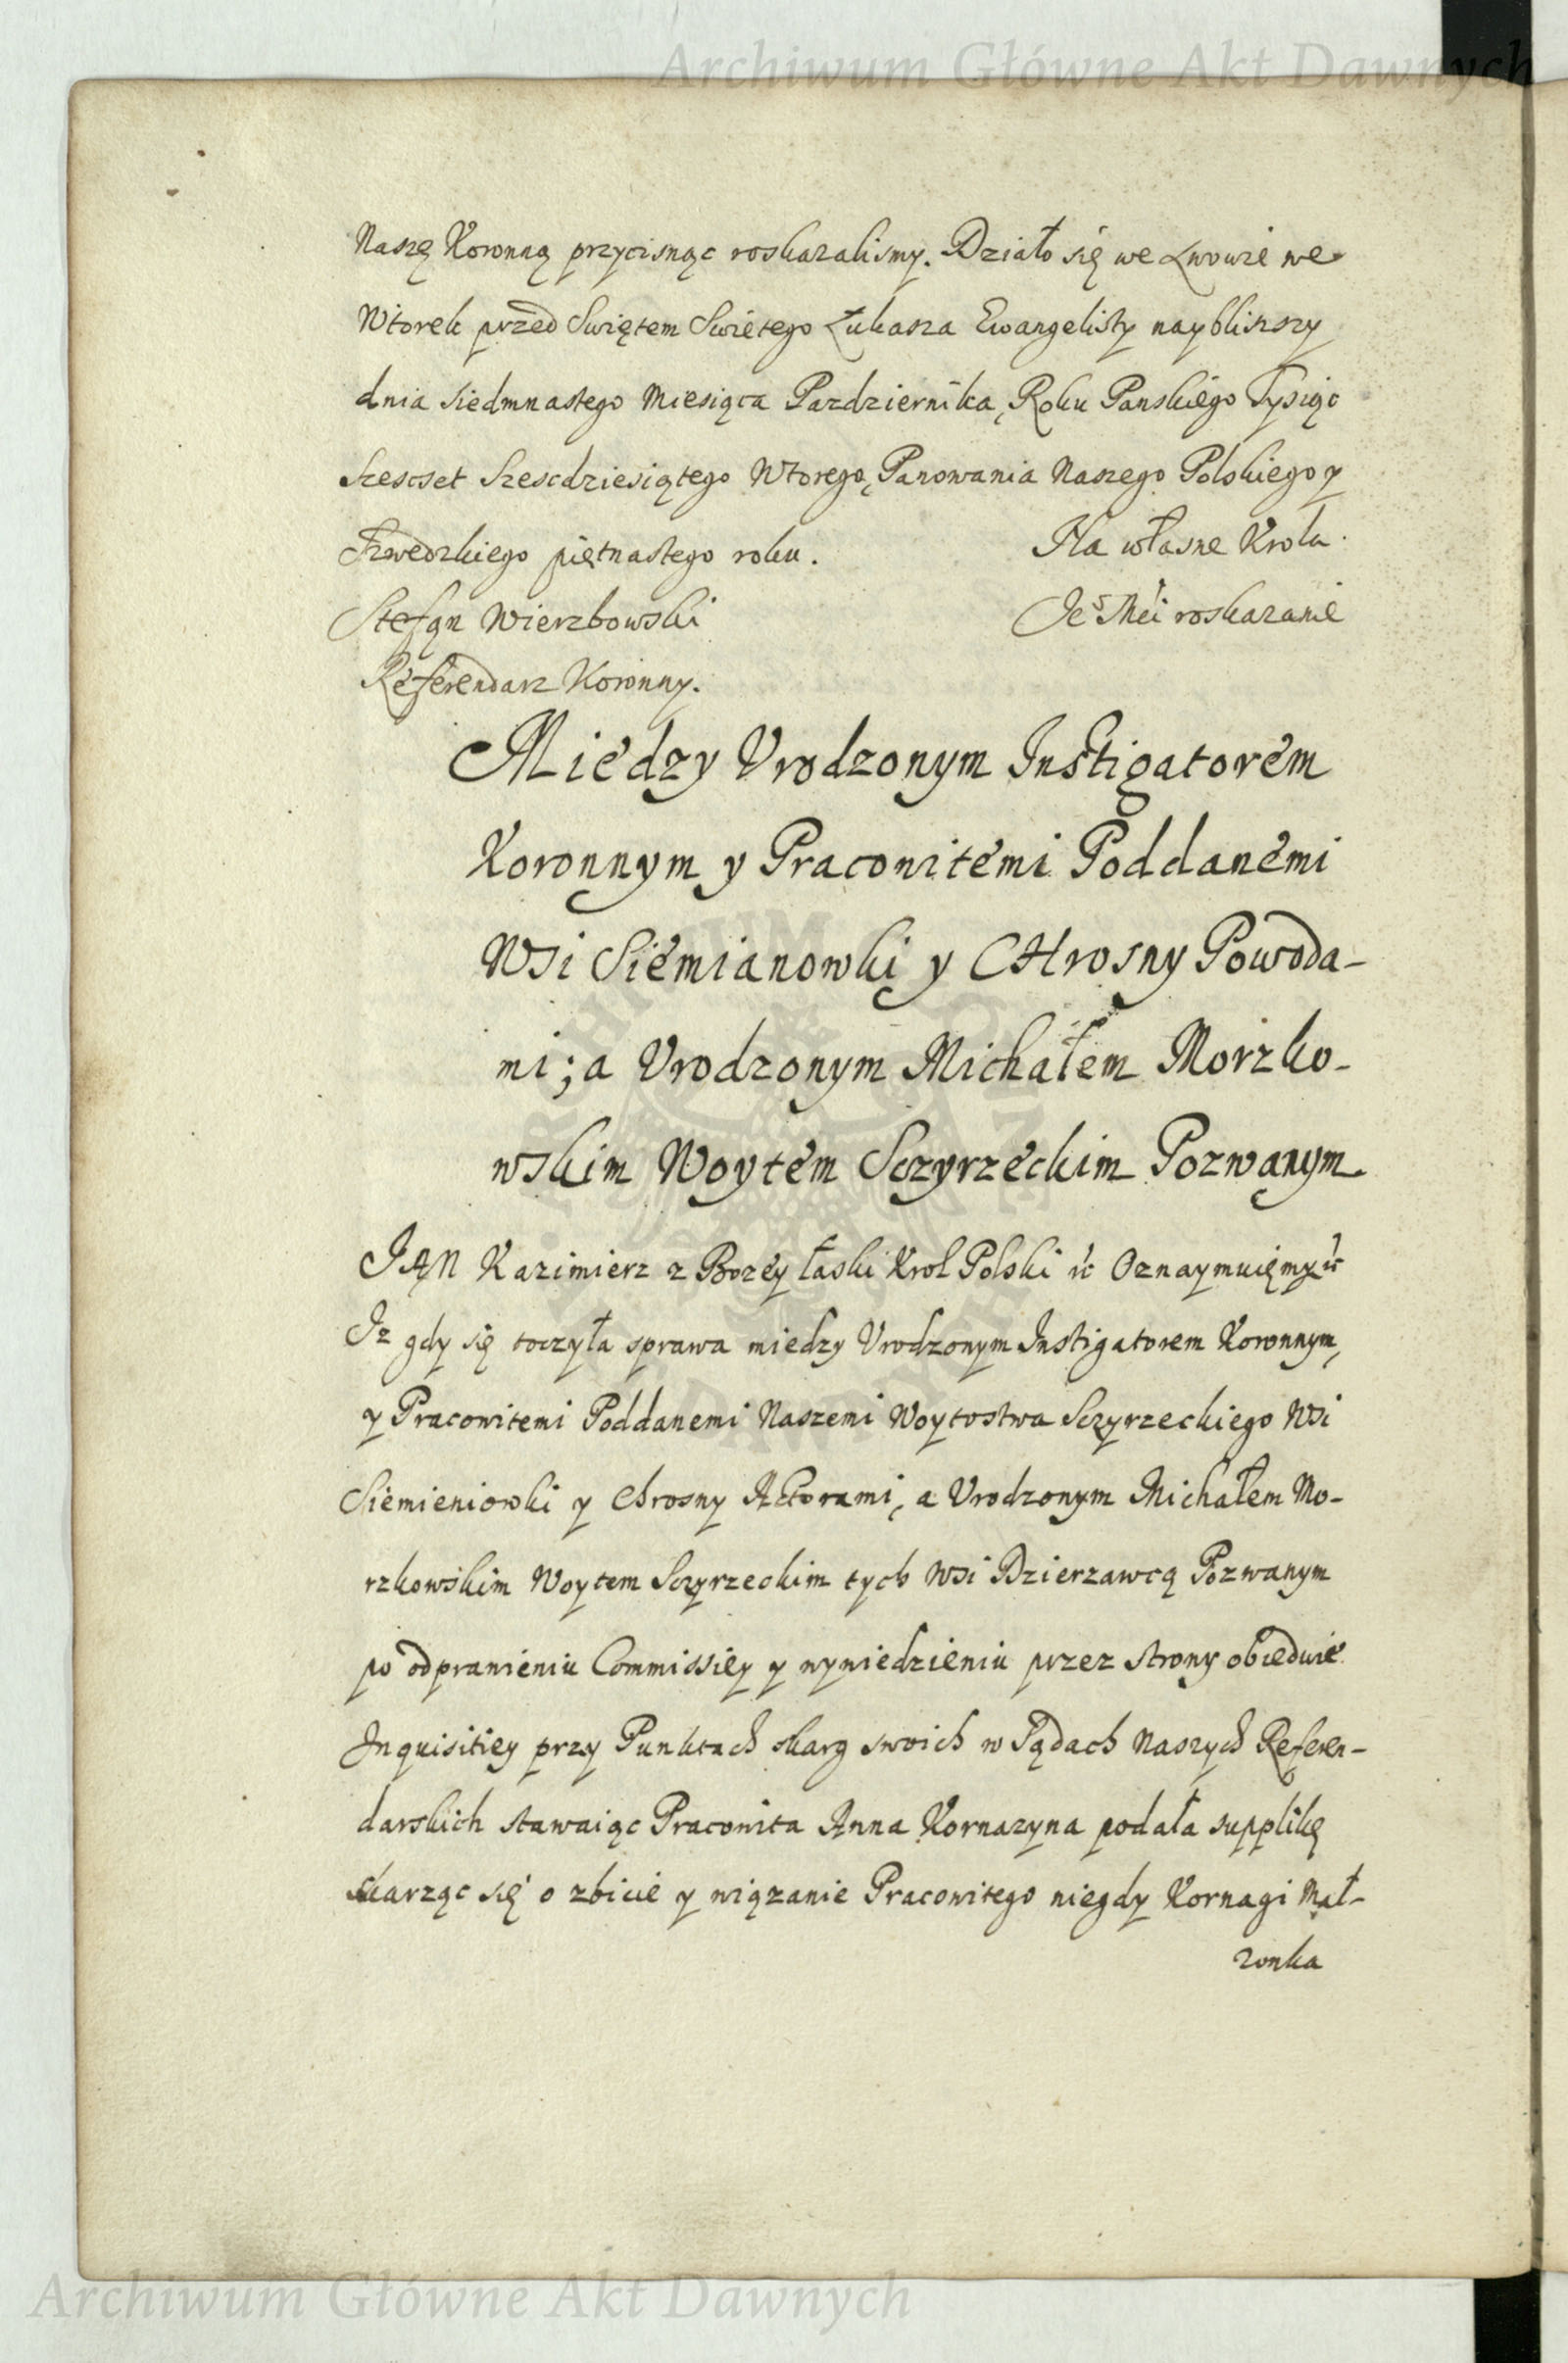 Archiwum Główne Akt Dawnych
Naszę Koronną przycisnąc roskazalismy. Działo się we Lwowie we
Wtorek przed Swiętem Swietego Łukasza Ewangelisty naybliszszy
dnia siedmnastego Miesiąca Pazdziernika, Roku Panskiego Tysiąc
Szescset Szescdziesiątego Wtorego, Panowania Naszego Polskiego y
Szwedzkiego piętnastego roku.
Na własne Krola
Stefan Wierzbowski
Je⁰ Mci roskazanie
Referendarz Koronny.
Miedzy Vrodzonym Instigatorem
Koronnym y Pracowitemi Poddanemi
Wsi Siemianowki y CHrosny Powoda-
mi; a Vrodzonym Michałem Morzko-
wskim Woytem Sczyrzeckim Pozwanym.
JAN Kazimierz z Bozey łaski Krol Polski &c Oznaymuięmy &c
Iz gdy się toczyła sprawa miedzy Vrodzonym Instigatorem Koronnym,
y Pracowitemi Poddanemi Naszemi Woytostwa Sczyrzeckiego Wsi
Siemieniowki y Chrosny Actorami, a Vrodzonym Michałem Mo-
rzkowskim Woytem Sczyrzeckim tych Wsi Dzierzawcą Pozwanym
po odprawieniu Commissiey y wywiedzieniu przez strony obiedwie
Inquisitiey przy Punktach skarg swoich w Sądach Naszych Referen-
darskich stawaiąc Pracowita Anna Kornazyna podała supplikę
skarząc się o zbicie y wiązanie Pracowitego niegdy Kornagi Mał-
zonka
Archiwum Główne Akt Dawnych